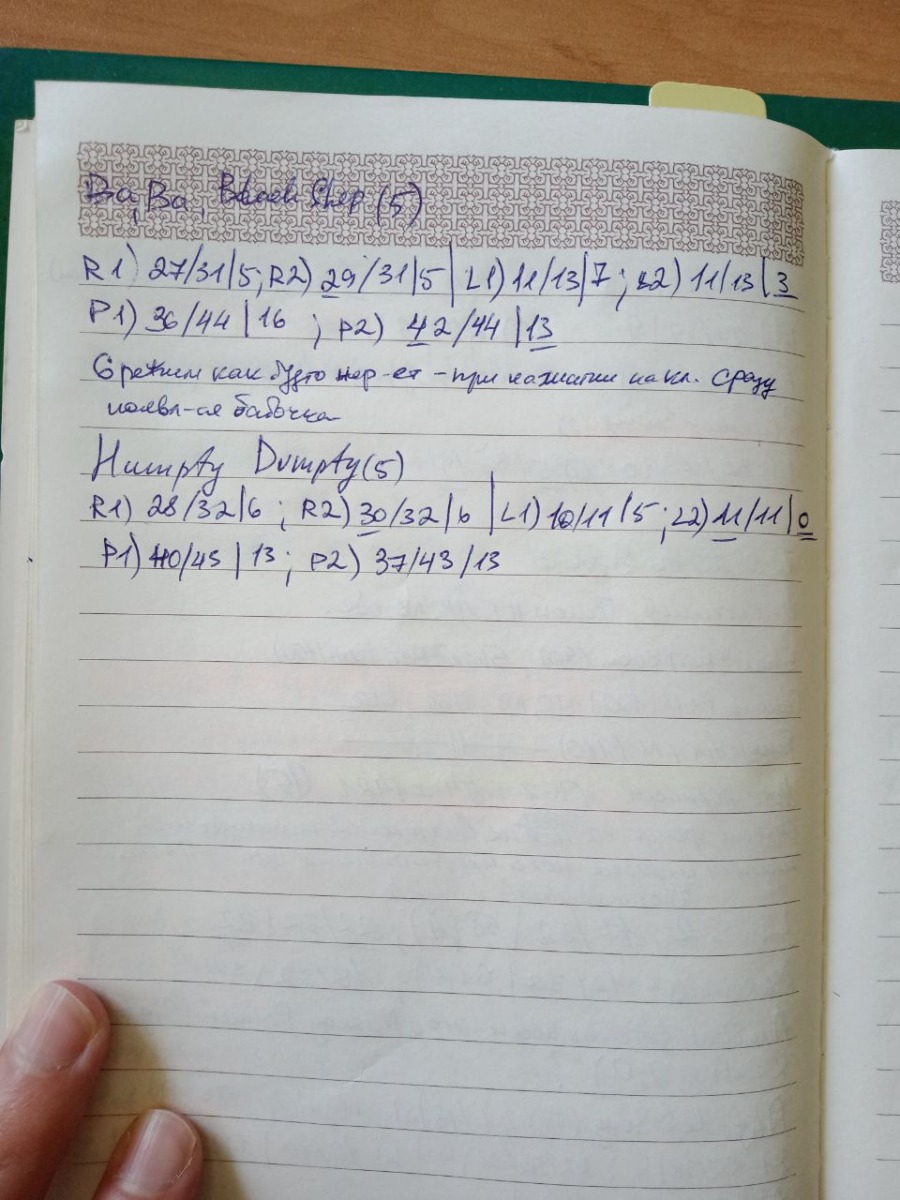 Ba, Ba, Black Shep (5)
R1) 27/31|5; R2) 29/31|5 | L1) 11/13|7; L2) 11/13|3
P1) 36/44|16 ; P2) 42/44|13
6 режим как будто нер-ет - при нажатии на кл. сразу
появл-ся бабочка
Humpty Dumpty (5)
R1) 28/32|6 ; R2) 30/32|6 | L1) 10/11|5; L2) 11/11|0
P1) 40/43|13; P2) 37/43/13